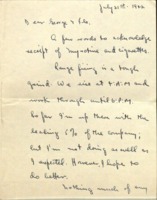 July 21st. 1942
Dear George & Lila,
A few words to acknowledge
receipt of magazine and cigarettes.
Range firing is a tough
grind. We are at it A.M. and
work through until 6 P.M.
So far I'm up there with the
leading 5% of the company,
but I'm not doing as well as
I expected. However, I hope to
do better.
Nothing much of any